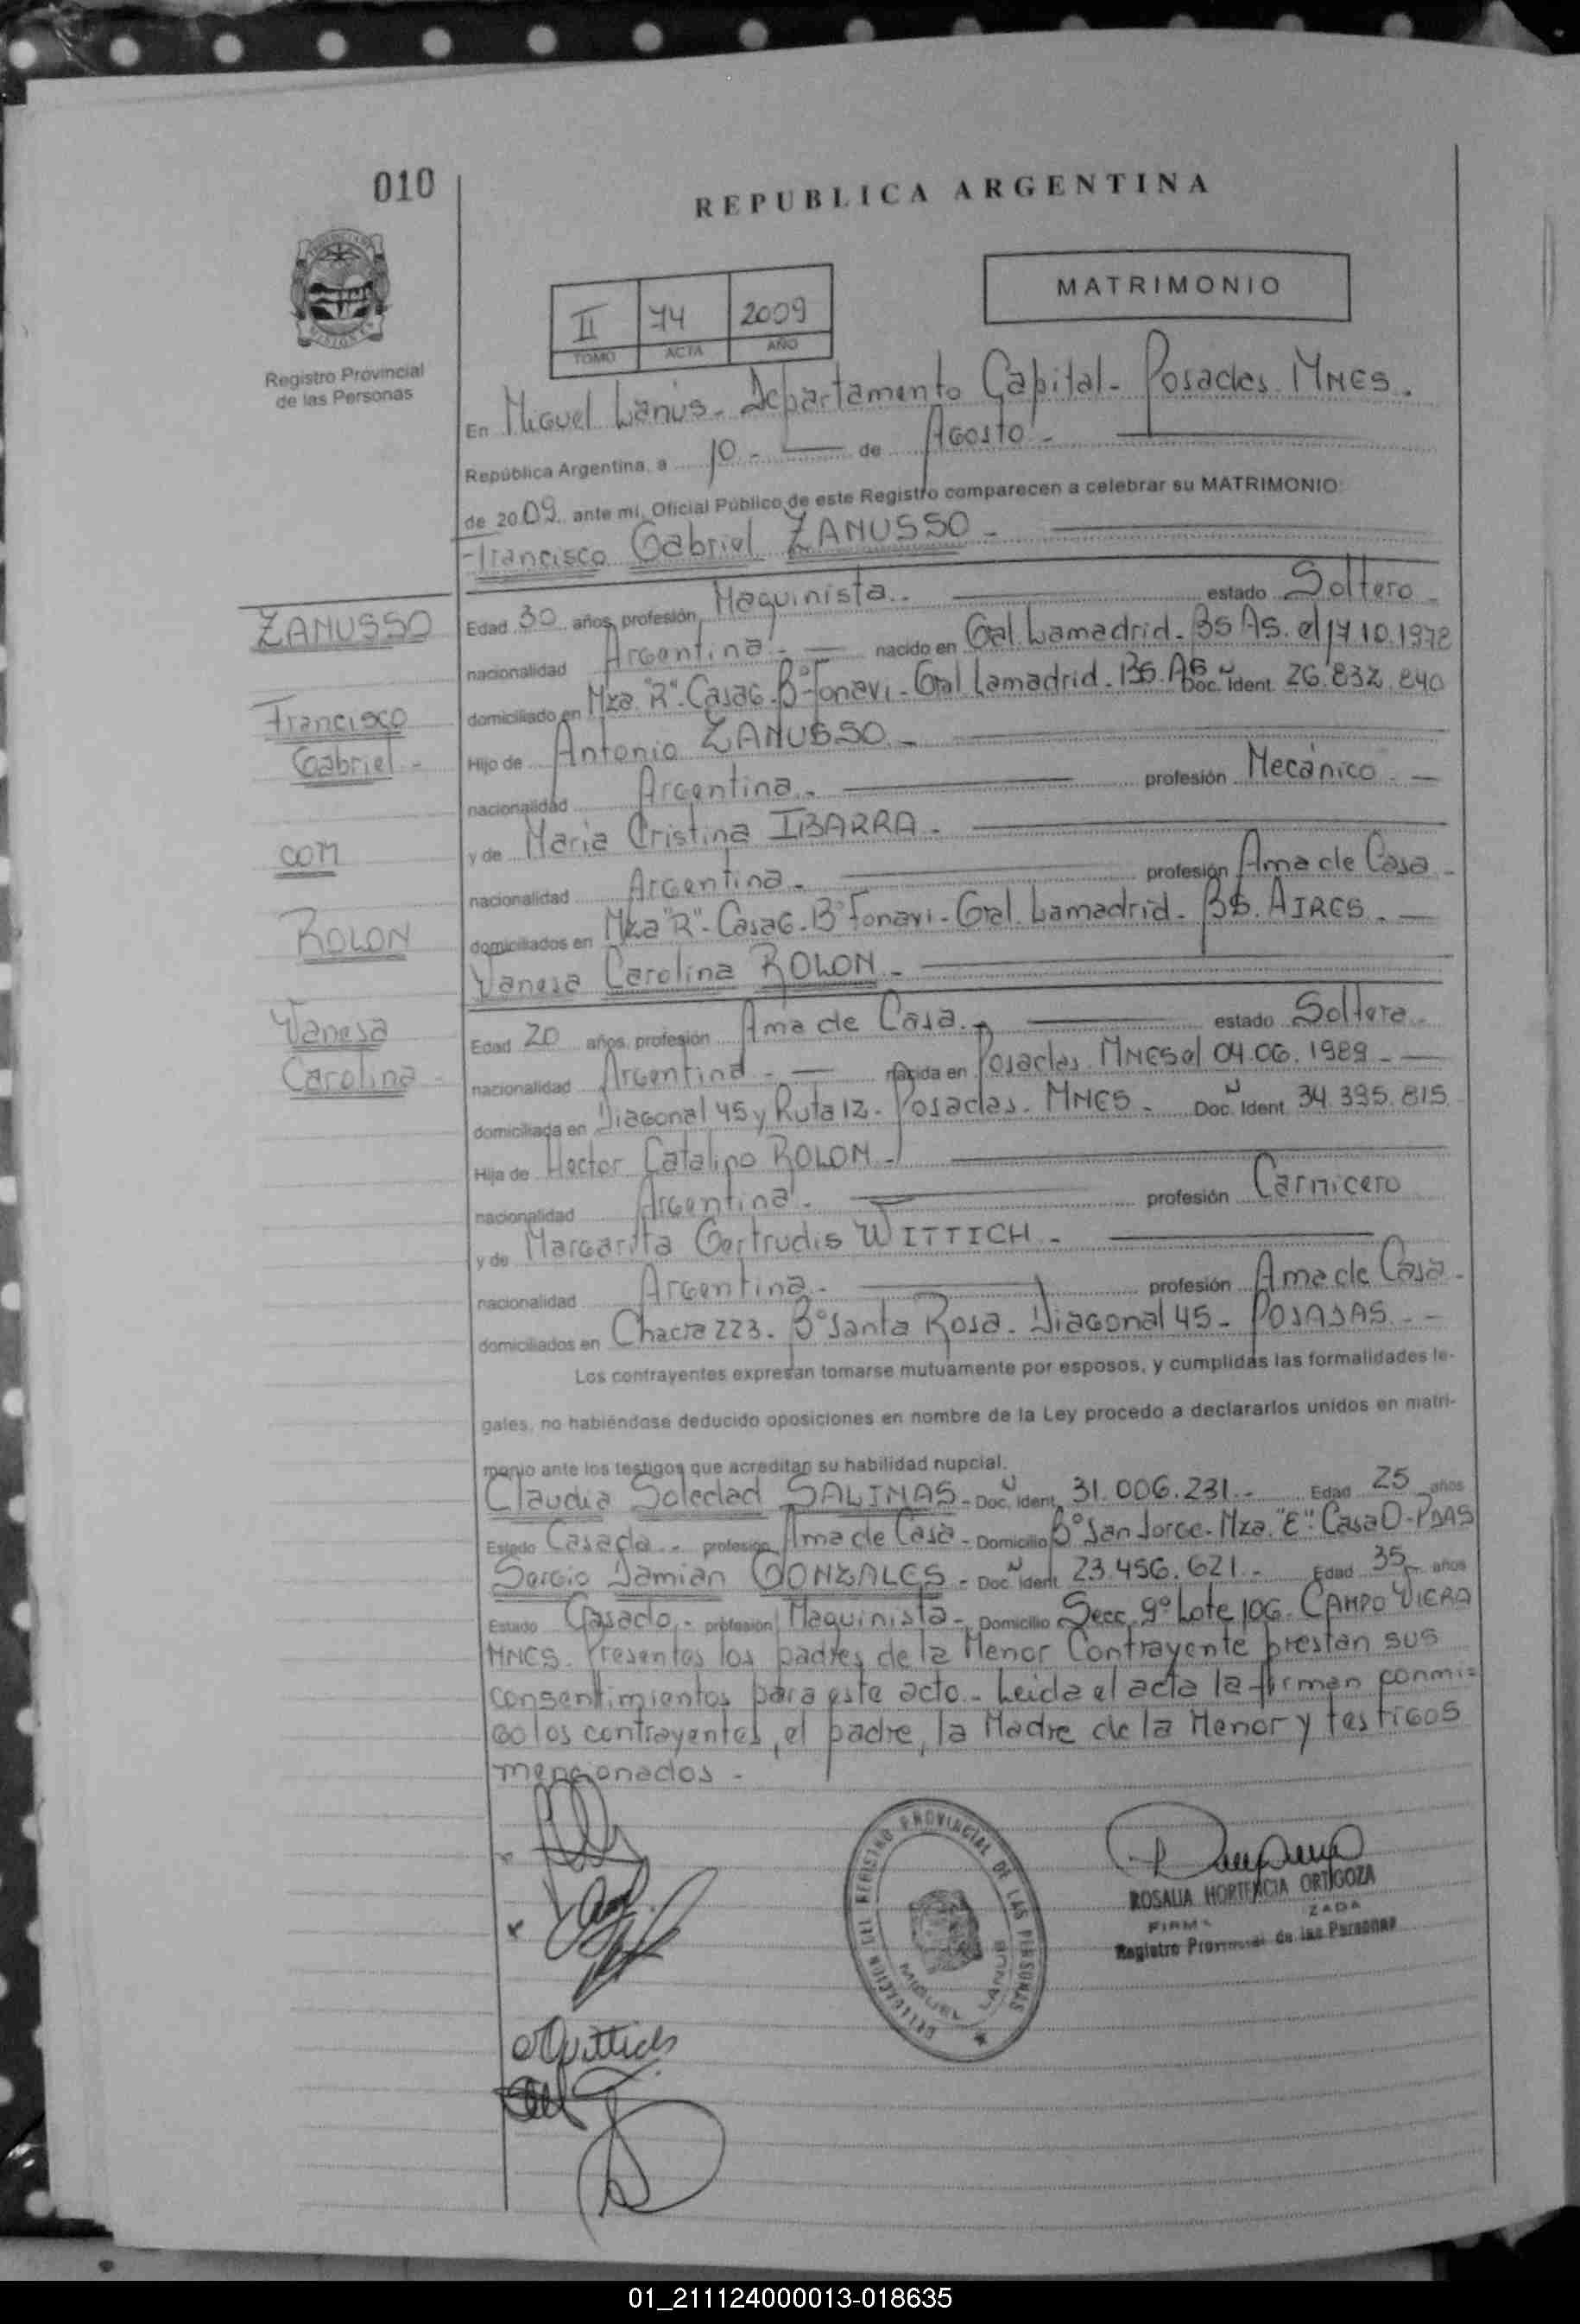 010
REPUBLICA ARGENTINA
MATRIMONIO
II 74 2009
TOMO ACTA AÑO
Registro Provincial
de las Personas
En Miguel Lanús - Departamento Capital - Posadas. MNES.
República Argentina, a 10 - de Agosto -
de 2009 ante mi, Oficial Público de este Registro comparecen a celebrar su MATRIMONIO:
Francisco Gabriel ZANUSSO -
ZANUSSO
Edad 30 años, profesión Maquinista. estado Soltero -
nacionalidad Argentina - nacido en Gral. Lamadrid - BS AS. el 17.10.1978
Francisco
domiciliado en Mza. "R" - Casa 6 - B° Fonavi - Gral Lamadrid - BS. AS Doc. Ident. 26.832.840
Gabriel -
Hijo de Antonio ZANUSSO -
nacionalidad Argentina. - profesión Mecánico -
con
y de María Cristina IBARRA -
nacionalidad Argentina - profesión Ama de Casa -
ROLON
domiciliados en Mza "R" - Casa 6 - B° Fonavi - Gral. Lamadrid - BS. AIRES. -
Vanesa Carolina ROLON -
Vanesa
Carolina -
Edad 20 años, profesión Ama de Casa. - estado Soltera -
nacionalidad Argentina - nacida en Posadas. MNES el 04.06.1989 -
domiciliada en Diagonal 45 y Ruta 12 - Posadas. MNES - Doc. Ident. 34.395.815
Hija de Hector Catalino ROLON -
nacionalidad Argentina - profesión Carnicero
y de Margarita Gertrudis WITTICH -
nacionalidad Argentina - profesión Ama de Casa -
domiciliados en Chacra 223 - B° Santa Rosa - Diagonal 45 - POSADAS - -
Los contrayentes expresan tomarse mutuamente por esposos, y cumplidas las formalidades le-
gales, no habiéndose deducido oposiciones en nombre de la Ley procedo a declararlos unidos en matri-
monio ante los testigos que acreditan su habilidad nupcial.
Claudia Soledad SALINAS - Doc. Ident. 31.006.231 - Edad 25 años
Estado Casada - profesión Ama de Casa - Domicilio B° San Jorge - Mza. "E" - Casa 0 - PDAS
Sergio Damian GONZALES - Doc. Ident. 23.456.621 - Edad 35 años
Estado Casado - profesión Maquinista - Domicilio Secc. 9° Lote 106. CAMPO VIERA
MNES. Presentes los padres de la Menor Contrayente prestan sus
consentimientos para este acto - Leida el acta la firman conmi=
go los contrayentes, el padre, la Madre de la Menor y testigos
mencionados -
DELEGACION DEL REGISTRO PROVINCIAL DE LAS PERSONAS
MIGUEL LANUS
ROSALIA HORTENCIA ORTIGOZA
Registro Provincial de las Personas
Wittich
01_211124000013-018635